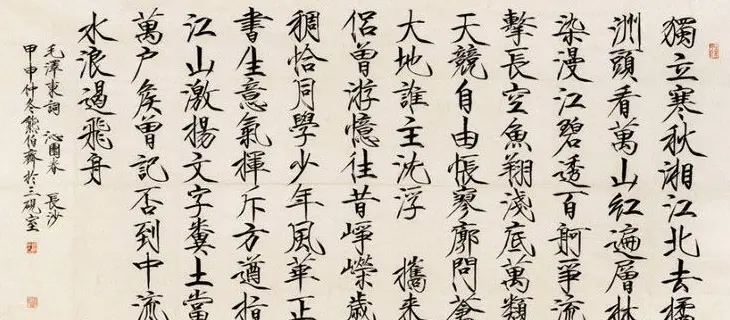 獨立寒秋湘江北去橘
洲頭看萬山紅遍層林
染漫江碧透百舸爭流
擊長空魚翔淺底萬類
天競自由悵寥廓問蒼
大地誰主沈浮 攜來
侶曾游憶往昔崢嶸歲
稠恰同學少年風華正
書生意氣揮斥方遒指
江山激揚文字糞土當
萬户矦曾記否到中流
水浪遏飛舟
毛澤東詞 沁園春 長沙
甲申仲冬熊伯齊於三硯室